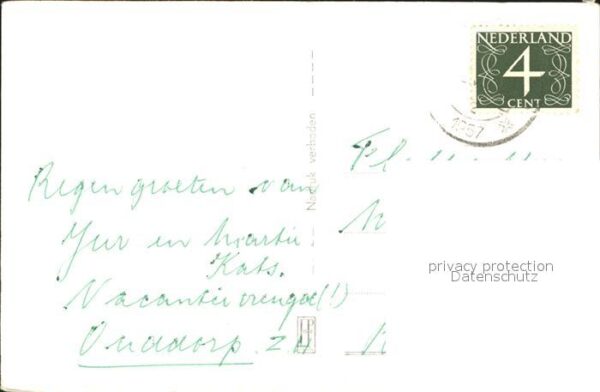 NEDERLAND
4
CENT
1957
Nadruk verboden
Regengroeten van
Jur en
Kats.
Vacantievreugde(!)
Ouddorp ZH
privacy protection
Datenschutz